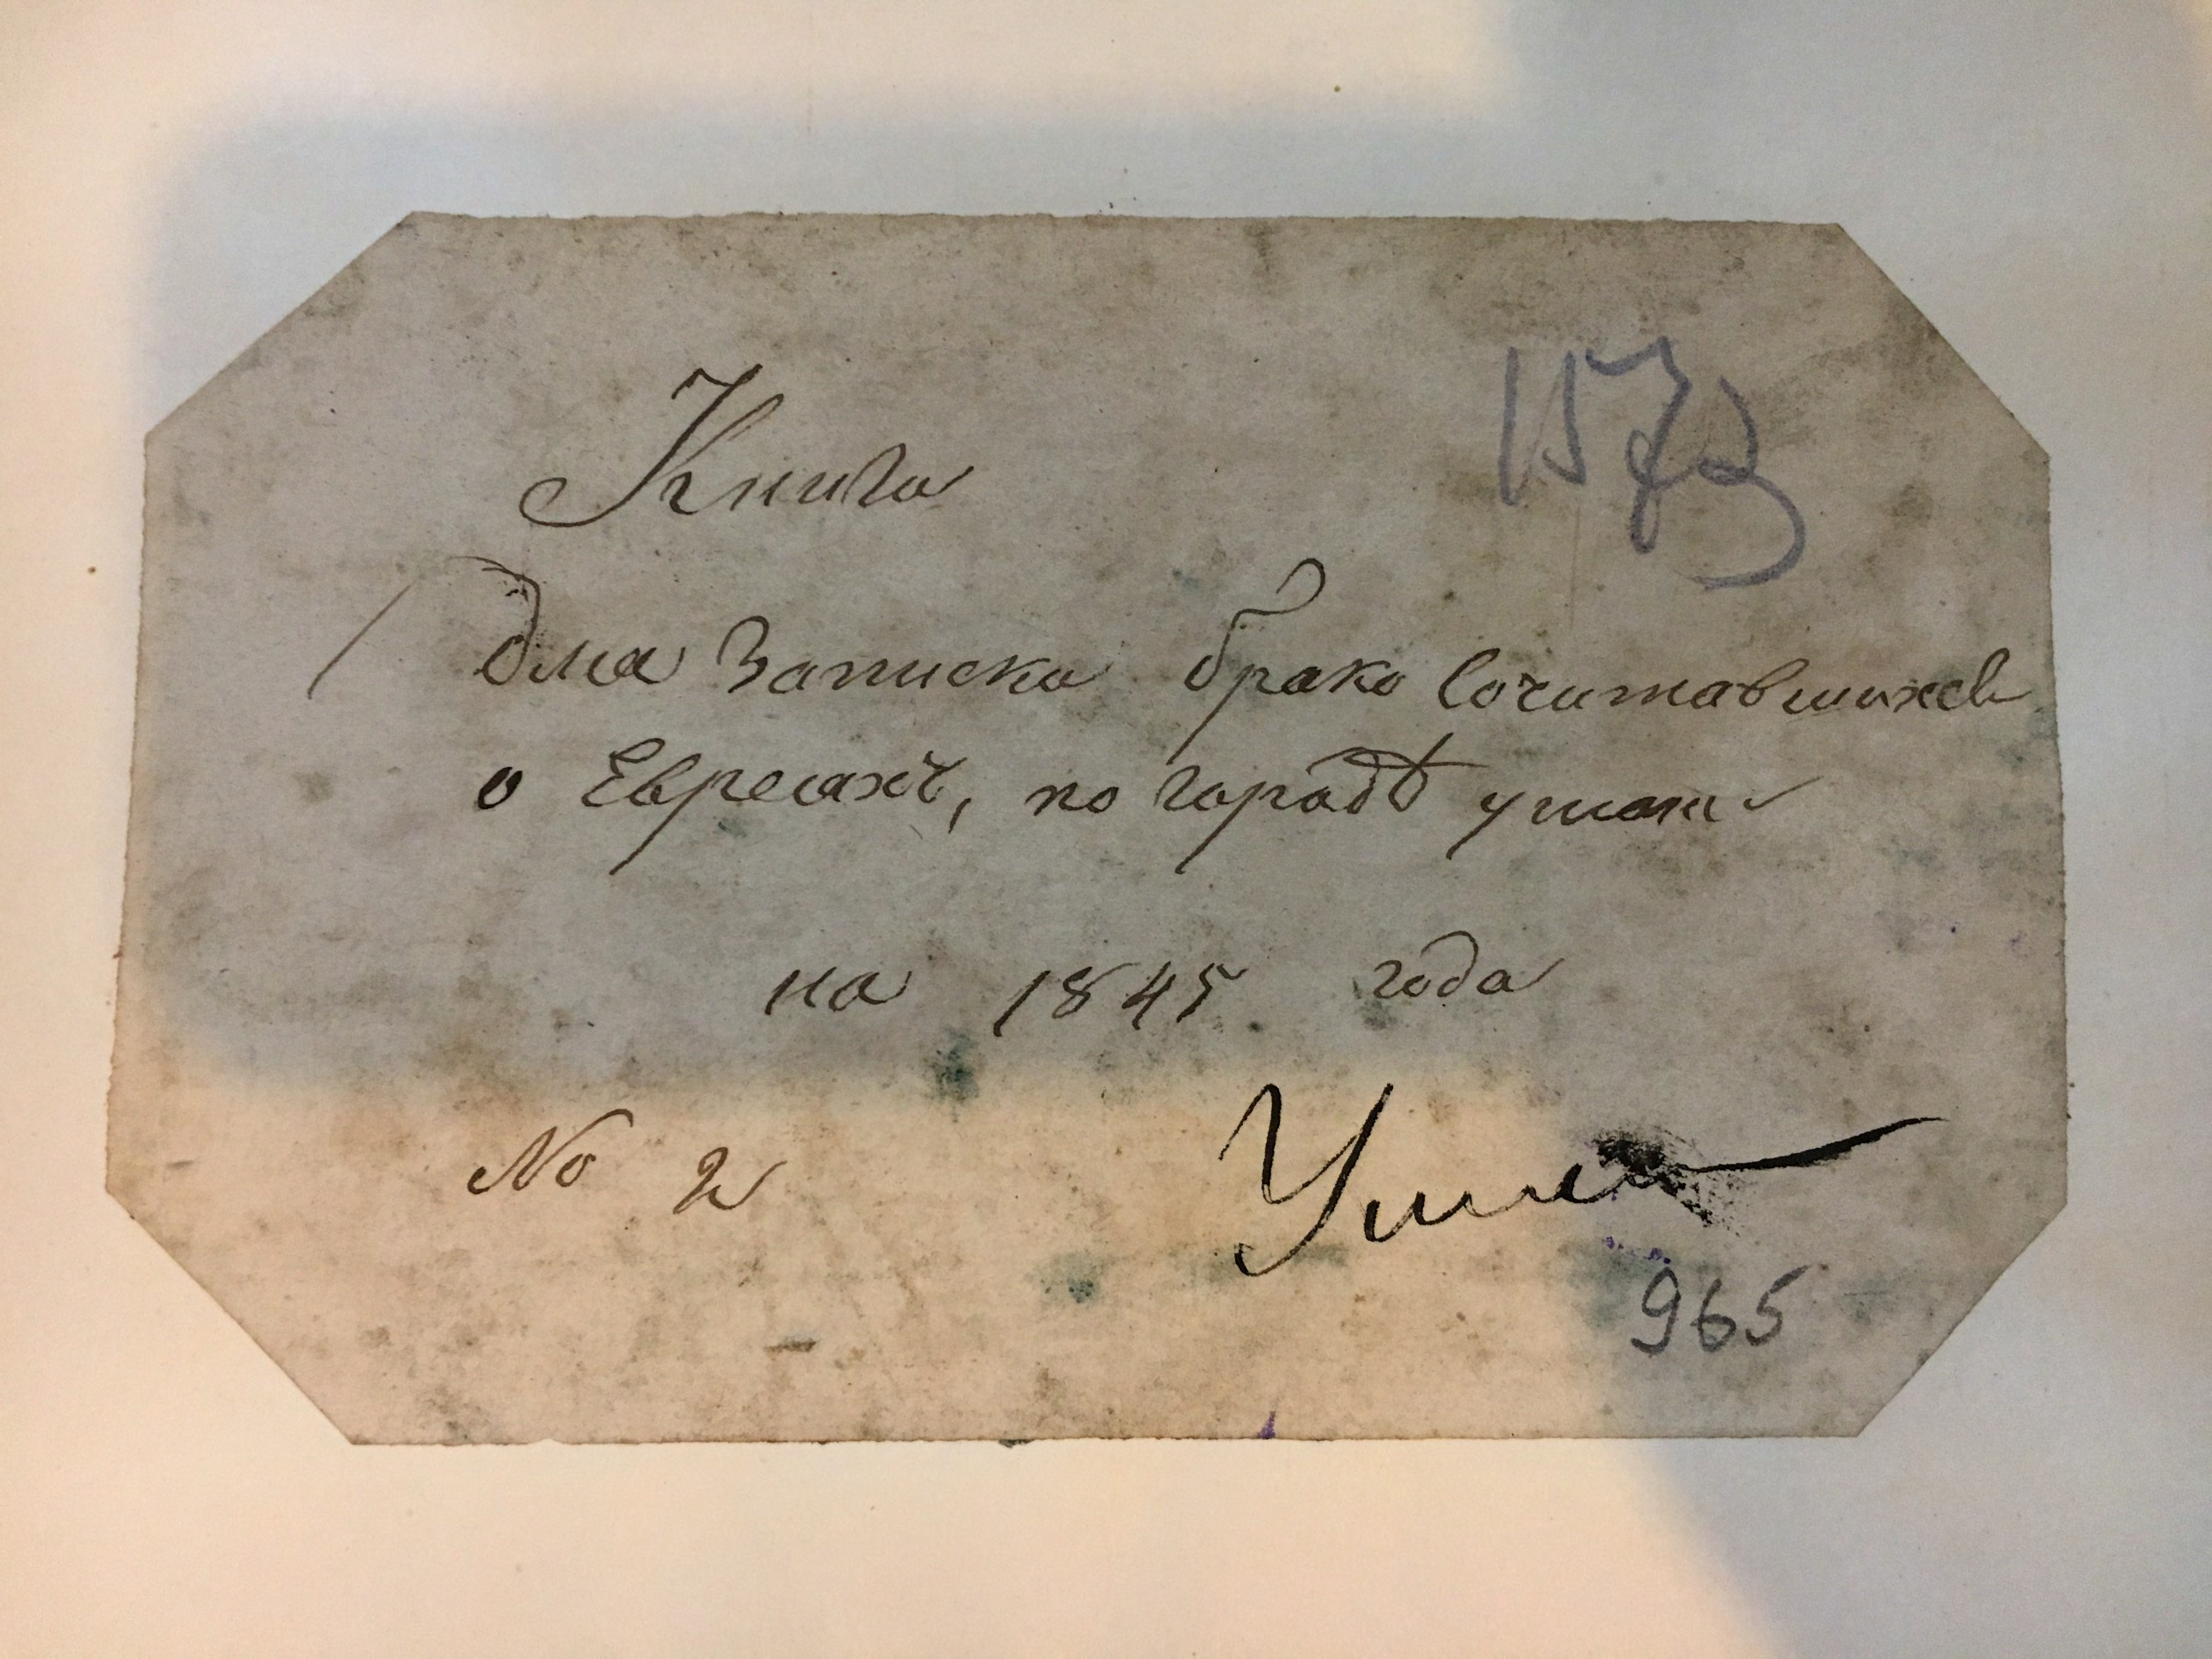 Книга
1573
для Записки бракосочитавшихся
о Евреяхъ, по городѣ умани
на 1845 года
No 2
Умань
965